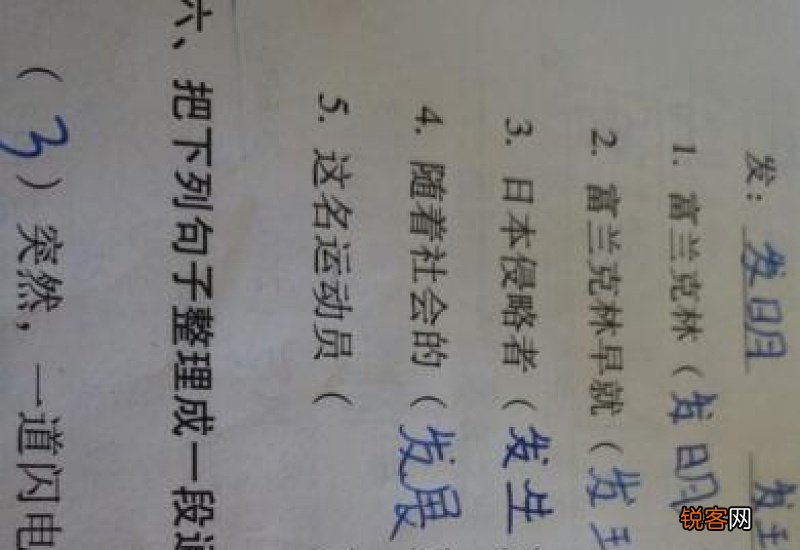 发：发明 发
1. 富兰克林（发明
2. 富兰克林早就（发
3. 日本侵略者（发生
4. 随着社会的（发展
5. 这名运动员（
六、把下列句子整理成一段
（3）突然，一道闪电
锐客网